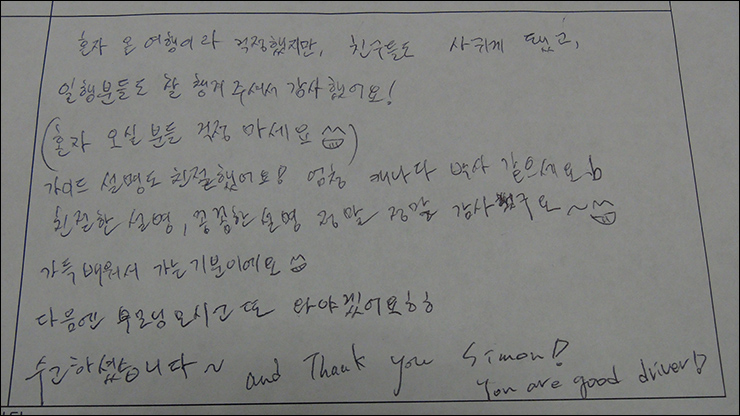 혼자 온 여행이라 걱정했지만, 친구들도 사귀게 됐고,
일행분들도 잘 챙겨주셔서 감사했어요!
(혼자 오실 분들 걱정 마세요)
가이드 설명도 친절했어요! 엄청 캐나다 박사 같으세요
친절한 설명, 꼼꼼한 설명 정말 정말 감사 구요~
가득 배워서 가는 기분이에요
다음엔 부모님 모시고 또 와야겠어요ㅎㅎ
수고하셨습니다~ and Thank you Simon!
You are good driver!